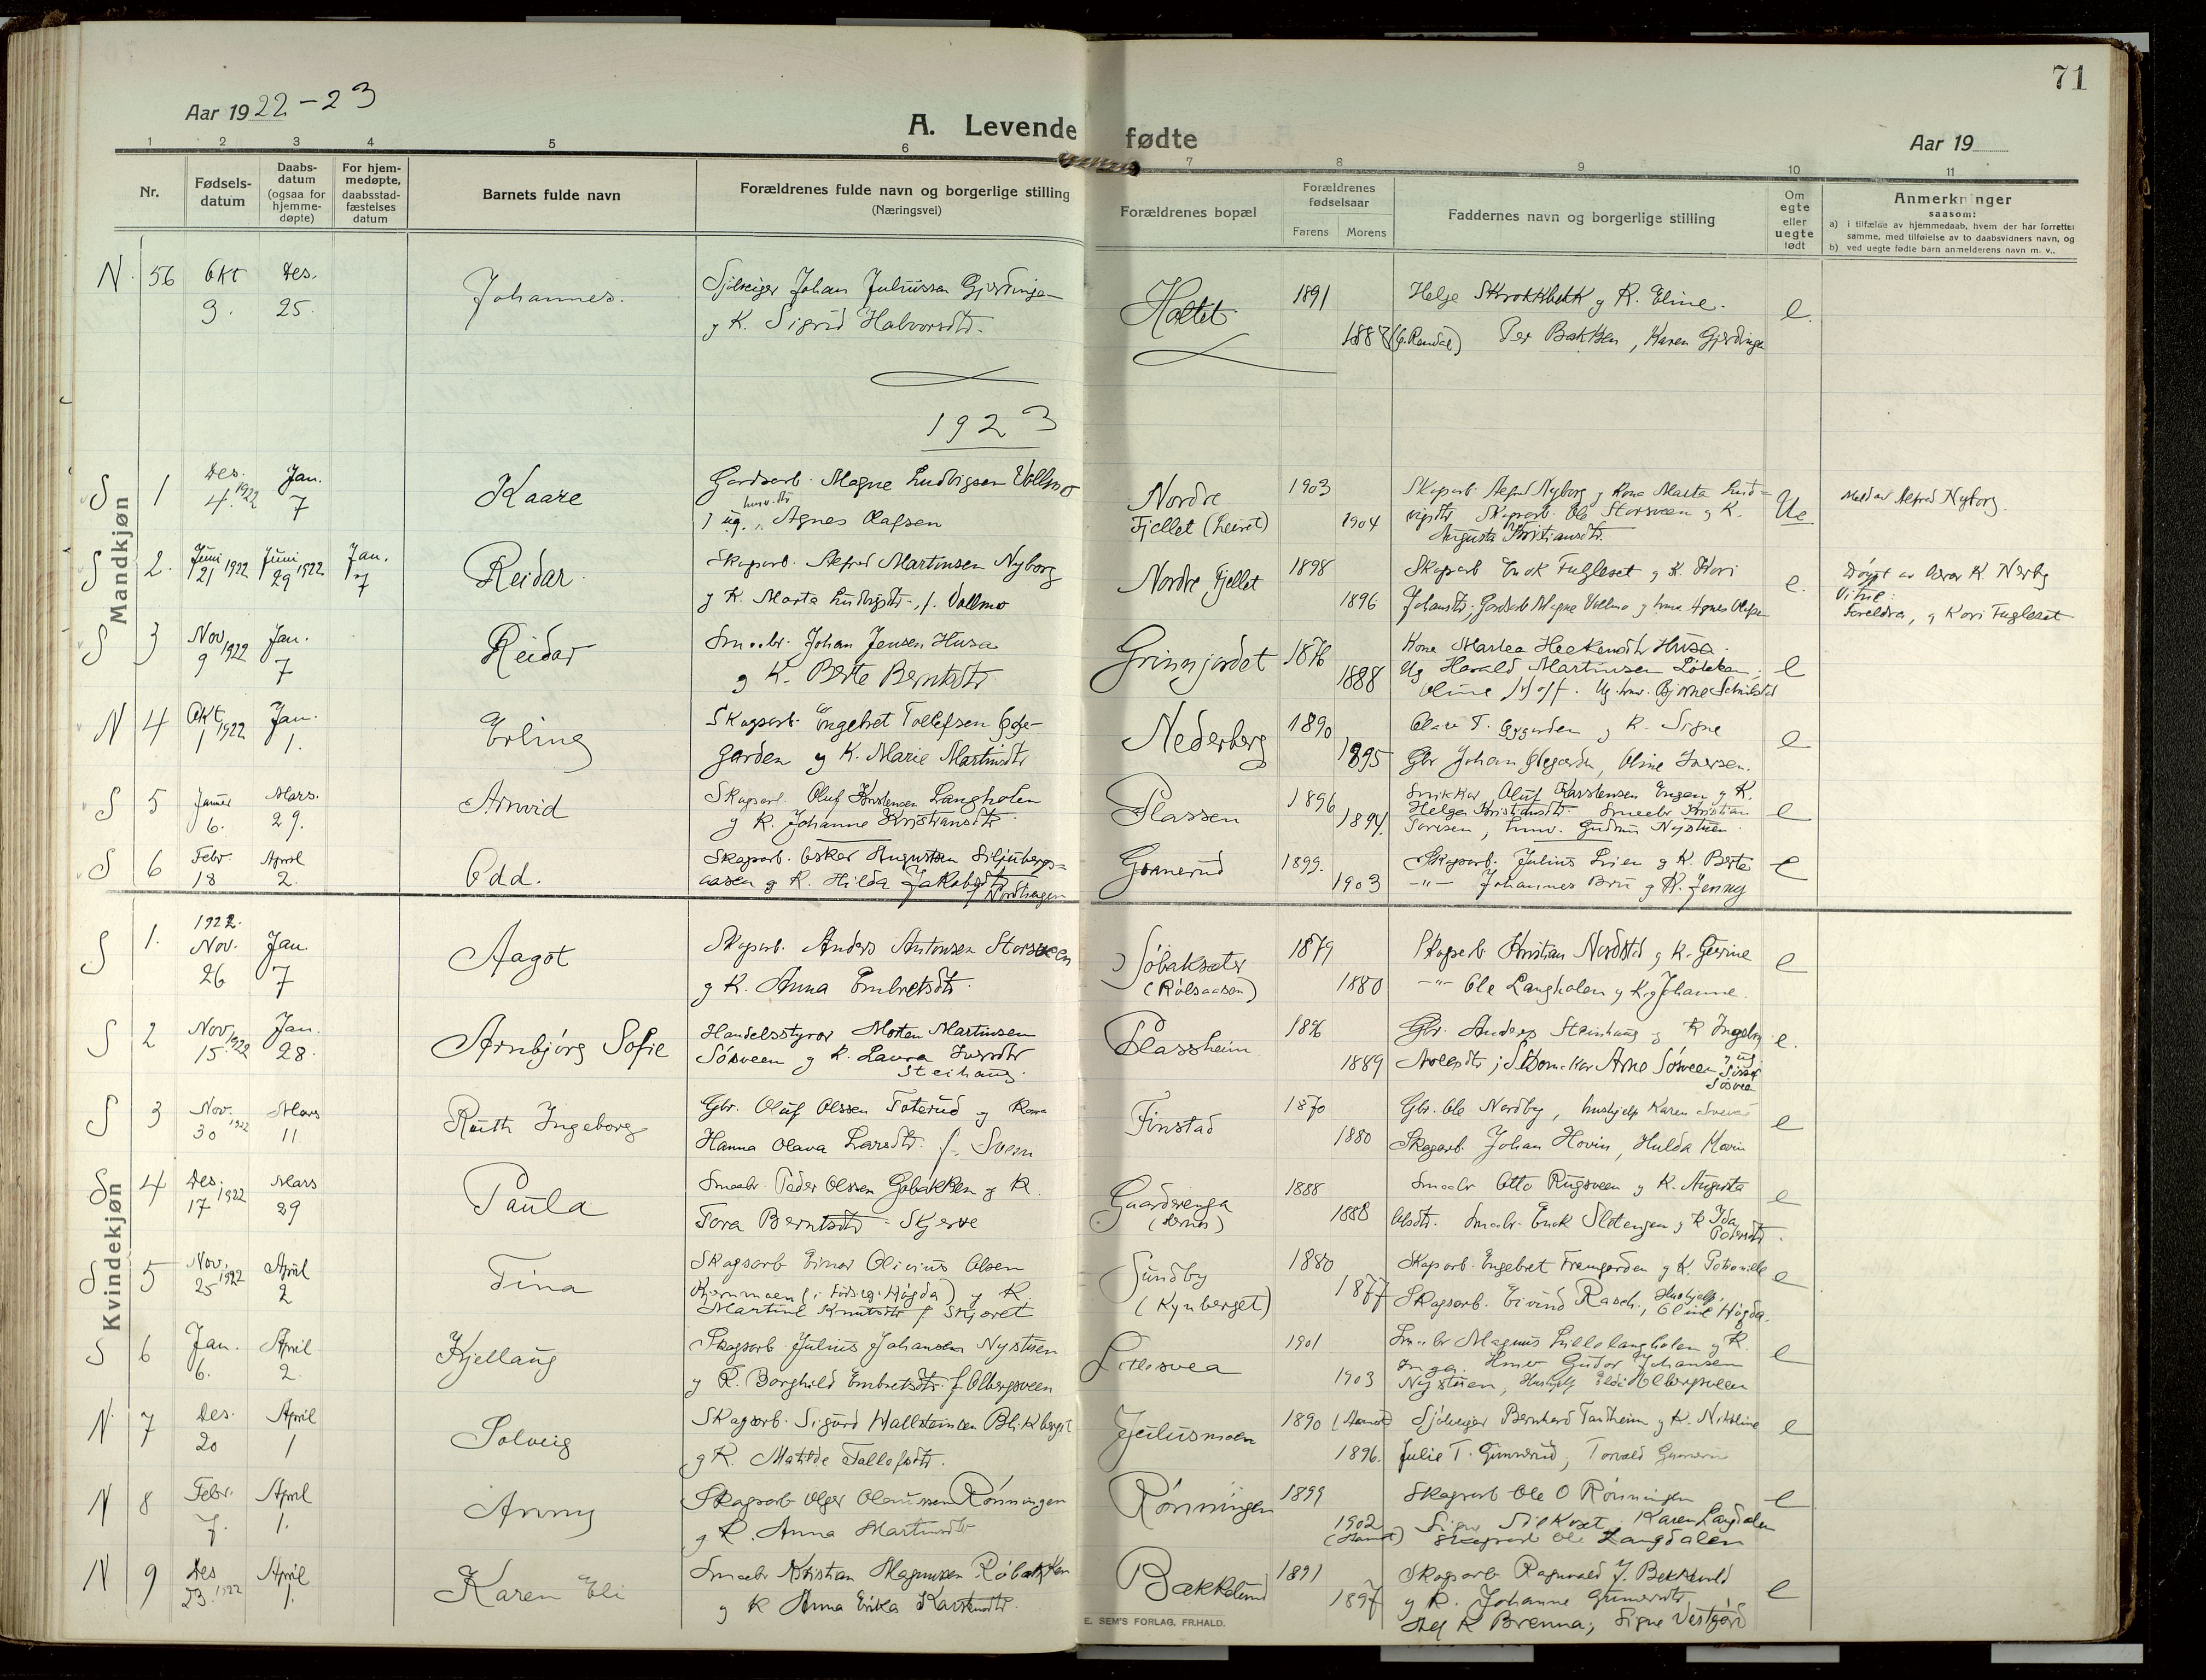 71
Aar 1922-23
A. Levende fødte
Aar 19
1 2 3 4 5 6 7 8 9 10 11
Nr.
Fødsels-
datum
Daabs-
datum
(ogsaa for
hjemme-
døpte)
For hjem-
medøpte,
daabsstad-
fæstelses
datum
Barnets fulde navn
Forældrenes fulde navn og borgerlige stilling
(Næringsvei)
Forældrenes bopæl
Forældrenes
fødselsaar
Farens Morens
Faddernes navn og borgerlige stilling
Om
egte
eller
uegte
født
Anmerkninger
saasom:
a) i tilfælde av hjemmedaab, hvem der har forrettet
samme, med tilføielse av to daabsvidners navn, og
b) ved uegte fødte barn anmelderens navn m. v..
N. 56 Okt Des. Johannes. Sjølveiger Johan Juliussen Gjerdingen Holtet 1891 Helge og K. Eline. e.
9. 25. g K. Sigrid Halvorsdtr. 1887 (Ø. Rendal) Per Bakken, Karen Gjerdingen
1923
Mandkjøn
S 1 Des. 1922 Jan. Kaare Gardsarb. Magne Ludvigsen Vollmo Nordre 1903 Skogsarb. Alfred Nyborg g Kona Marta Lud- Ue Meld av Alfred Nyborg.
4. 7 g ug. husv. Agnes Olafsen Fjellet (Leiret) 1904 vigsdtr Skogsarb. Ole Storsveen g K.
Augusta Kristiansdtr.
S 2. Juni 1922 Juni 1922 Jan. Reidar Skogsarb. Alfred Martinsen Nyborg Nordre Fjellet 1898 Skogsarb Fugleset g K. Kari e. Døypt av K. Nerby
21 29 7 g K. Marta Ludvigsdtr. f. Vollmo 1896 Johansdtr, Gardsarb Magne Vollmo g husv. Agnes Olafsen Vitne:
Foreldra, g Kari Fugleset
S 3 Nov 1922 Jan. Reidar Smaabr. Johan Jensen Husa Grinnjordet 1876 Kona Husa.
9 7 g K. Berte Berntsdtr 1888 Ug Harald Martinsen e
Oline Ug. husv. Bjarne
N 4 Okt 1922 Jan. Erling Skogsarb. Engebret Tollefsen Øde- Nederberg 1890 Olav T. g K. Signe e
1 1. garden g K. Marie Martinsdtr 1895 Gbr Johan, Oline Iversen.
S 5 Januar Mars. Arnvid Skogsarb. Oluf Karstensen Langholen Plassen 1896 Snikkar Oluf Karstensen Engen g K.
6. 29. g K. Johanne Kristiansdtr 1894. Helga Kristiansdtr. Smaabr. Kristian e
husv. Gudrun Nystuen.
S 6 Febr. April Odd. Skogsarb. Oskar Augustsen Siljubergs- Gornerud 1899. Skogsarb. Julius Lien g K. Berte e
18 2. aasen g K. Hilda Jakobsdtr f Nordhagen 1903 -"- Johannes Bru g K. Jenny
Kvindekjøn
S 1. 1922. Nov. Jan. Aagot Skogsarb. Anders Antonsen Storsveen Søbaksæter 1879 Skogsarb Kristian g K. Gurine e
26 7 g K. Anna Embretsdtr. (Rølsaasen) 1880 -"- Ole Langholen g K. Johanne.
S 2 Nov 1922 Jan. Arnbjørg Sofie Handelsstyrar Morten Martinsen Plassheim 1896 Gbr. Anders Steinhaug g K Ingeborg e.
15. 28. Søsveen g K. Laura Iversdtr 1889 Arne Søsveen g ug.
Steihaug. Søsveen
S 3 Nov. 1922 Mars Ruth Ingeborg Gbr. Oluf Olssen Toterud og Kona Finstad 1870 Gbr. Ole Nordby, hushjelp Karen e
30 11 Hanna Olava Larsdtr. f. Sveen 1880 Skogsarb. Johan Hovin, Hulda Hovin
S 4 Des. 1922 Mars Paula Smaabr. Peder Olssen Gobakken g K. Gaarderenga 1888 Smaabr Otto Rugsveen g K. Augusta e
17 29 Tora Berntsdtr - Skjerve (Hernes) 1888 Olsdtr. Smaabr. Enok Sletengen g K Ida
S 5 Nov. 1922 April Tina Skogsarb Einar Olinius Olsen Sundby 1880 Skogsarb. Engebret Framgarden g K. Petronille e
25 2 Kjernmoen (i Høgda) g K. (Kynberget) 1877 Skogsarb. Eivind Rasch, Hushjelp, Oline Høgda.
Martine Knutsdtr f Skjøret
S 6 Jan. April Kjellaug Skogsarb. Julius Johansen Nystuen Litlesvea 1901 Smaabr Magnus Lillelangholen g K. e
6. 2. g K. Borghild Embretsdtr. f Olbergsveen 1903 Inga. Husv Gudor Johansen
Nystuen, Hushjelp Olbergsveen
N. 7 Des. April Solveig Skogsarb. Sigurd Hallsteinsen Blikberget Julusmoen 1890 (Aamot) Sjølveiger Bernhard g K. Nikoline e
20 1 g K. Matilde Tollefsdtr. 1896. Julie T. Gunnerud, Torvald
N 8 Febr. April Arany Skogsarb Olger Olaussen Rønningen Rønningen 1899 Skogsarb Ole O Rønningen e
7. 1. g K. Anna Martinsdtr 1902 Signe Karen Langdalen
(Aamot) Skogsarb Ole Langdalen
N 9 Des 1922 April Karen Eli Smaabr Kristian Magnussen Røbakken Bakkelund 1891 Skogsarb Ragnvald J. e
23. 1. g K Anna Erika Karstensdtr. 1897 g K. Johanne Gunnersdtr
K Brenna; Signe Vestgård
E. SEM'S FORLAG, FR.HALD.